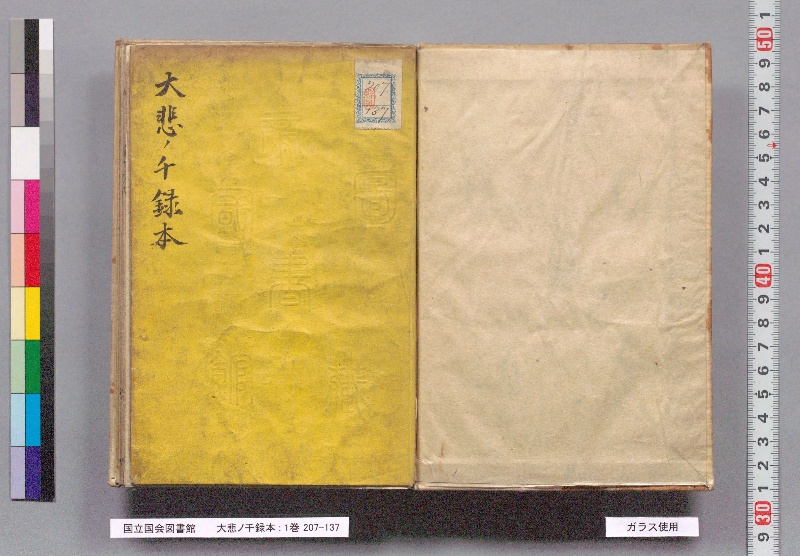 大悲ノ千録本
207
137
国立国会図書館 大悲ノ千録本：1巻 207-137
ガラス使用
1
50
9
8
7
6
5
4
3
2
1
40
9
8
7
6
5
4
3
2
1
30
9